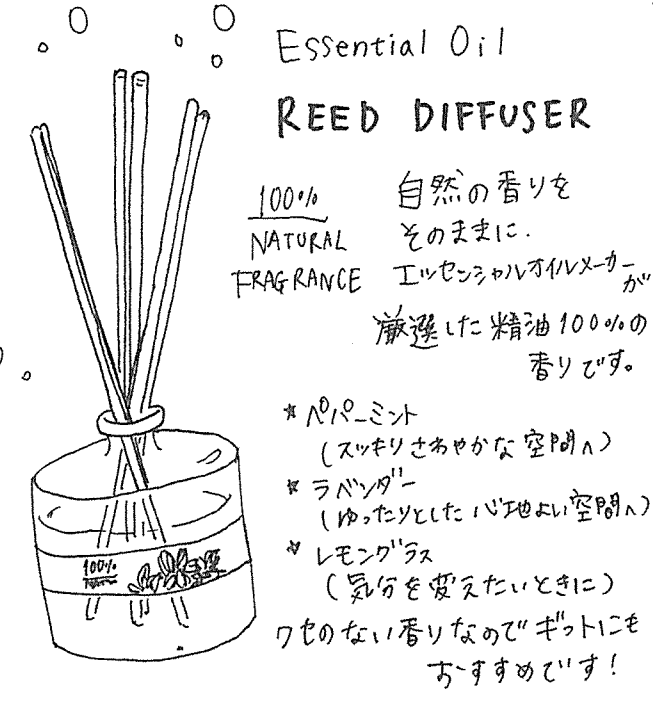 Essential Oil
REED DIFFUSER
100%
NATURAL
FRAGRANCE
自然の香りを
そのままに.
エッセンシャルオイルメーカーが
厳選した精油100%の
香りです。
★ペパーミント
(スッキリさわやかな空間へ)
★ラベンダー
(ゆったりとした心地よい空間へ)
★レモングラス
(気分を変えたいときに)
クセのない香りなのでギフトにも
おすすめです!
100%